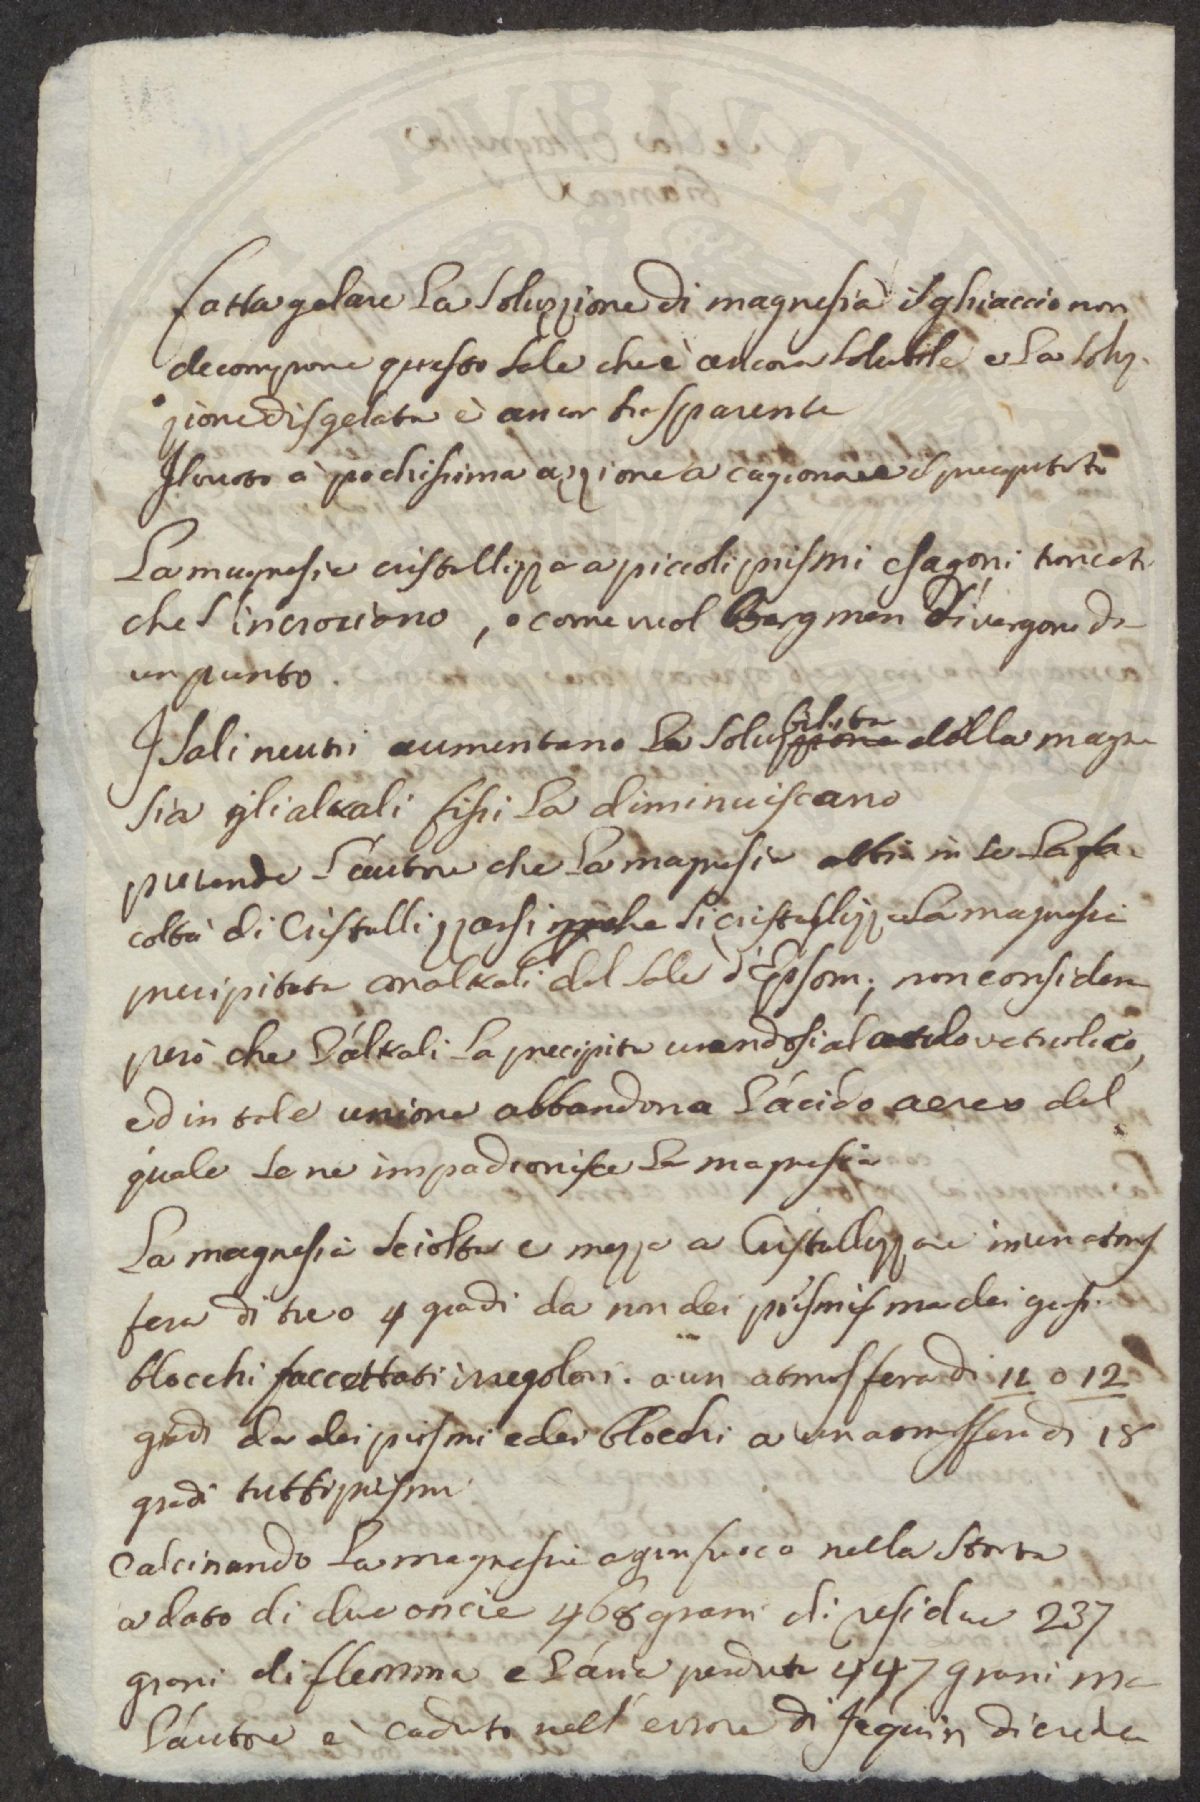 fatta gelare la soluzzione di magnesia il ghiaccio non
decompone questo sale che è ancora solubile e la soluz-
zione disgelata è ancor trasparente
Il vuoto à pochissima azzione a cagionare il precipitato
La magnesia cristallizza a piccoli prismi esagoni troncati
che s'incrociano, o come vuol Bergman divergono da
un punto.
I sali neutri aumentano la solubilità della magne
sia gli alkali fissi la diminuiscano
pretende l'autore che la magnesia abbia in se la fa-
coltà di Cristallizzarsi perche si cristallizza la magnesia
precipitata con alkali del sale d'Epsom; non considera
però che l'alkali la precipita unendosi al acido vetriolico,
ed in tale unione abbandona l'acido aereo del
quale se ne impadronisce la magnesia
La magnesia sciolta e mezza a Cristallizzare in un atmos
fera di tre o 4 gradi da non dei prismi ma dei grossi
blocchi faccettati irregolari. a un atmosfera di 11 o 12
gradi da dei prismi e dei blocchi a un atmosfera di 18
gradi tutti prismi
Calcinando la magnesia a gran fuoco nella storta
a dato di due oncie 468 grani di residuo 237
grani di flemma e l'aria perduta 447 grani ma
l'autore è caduto nell'errore di Jaquin di creder